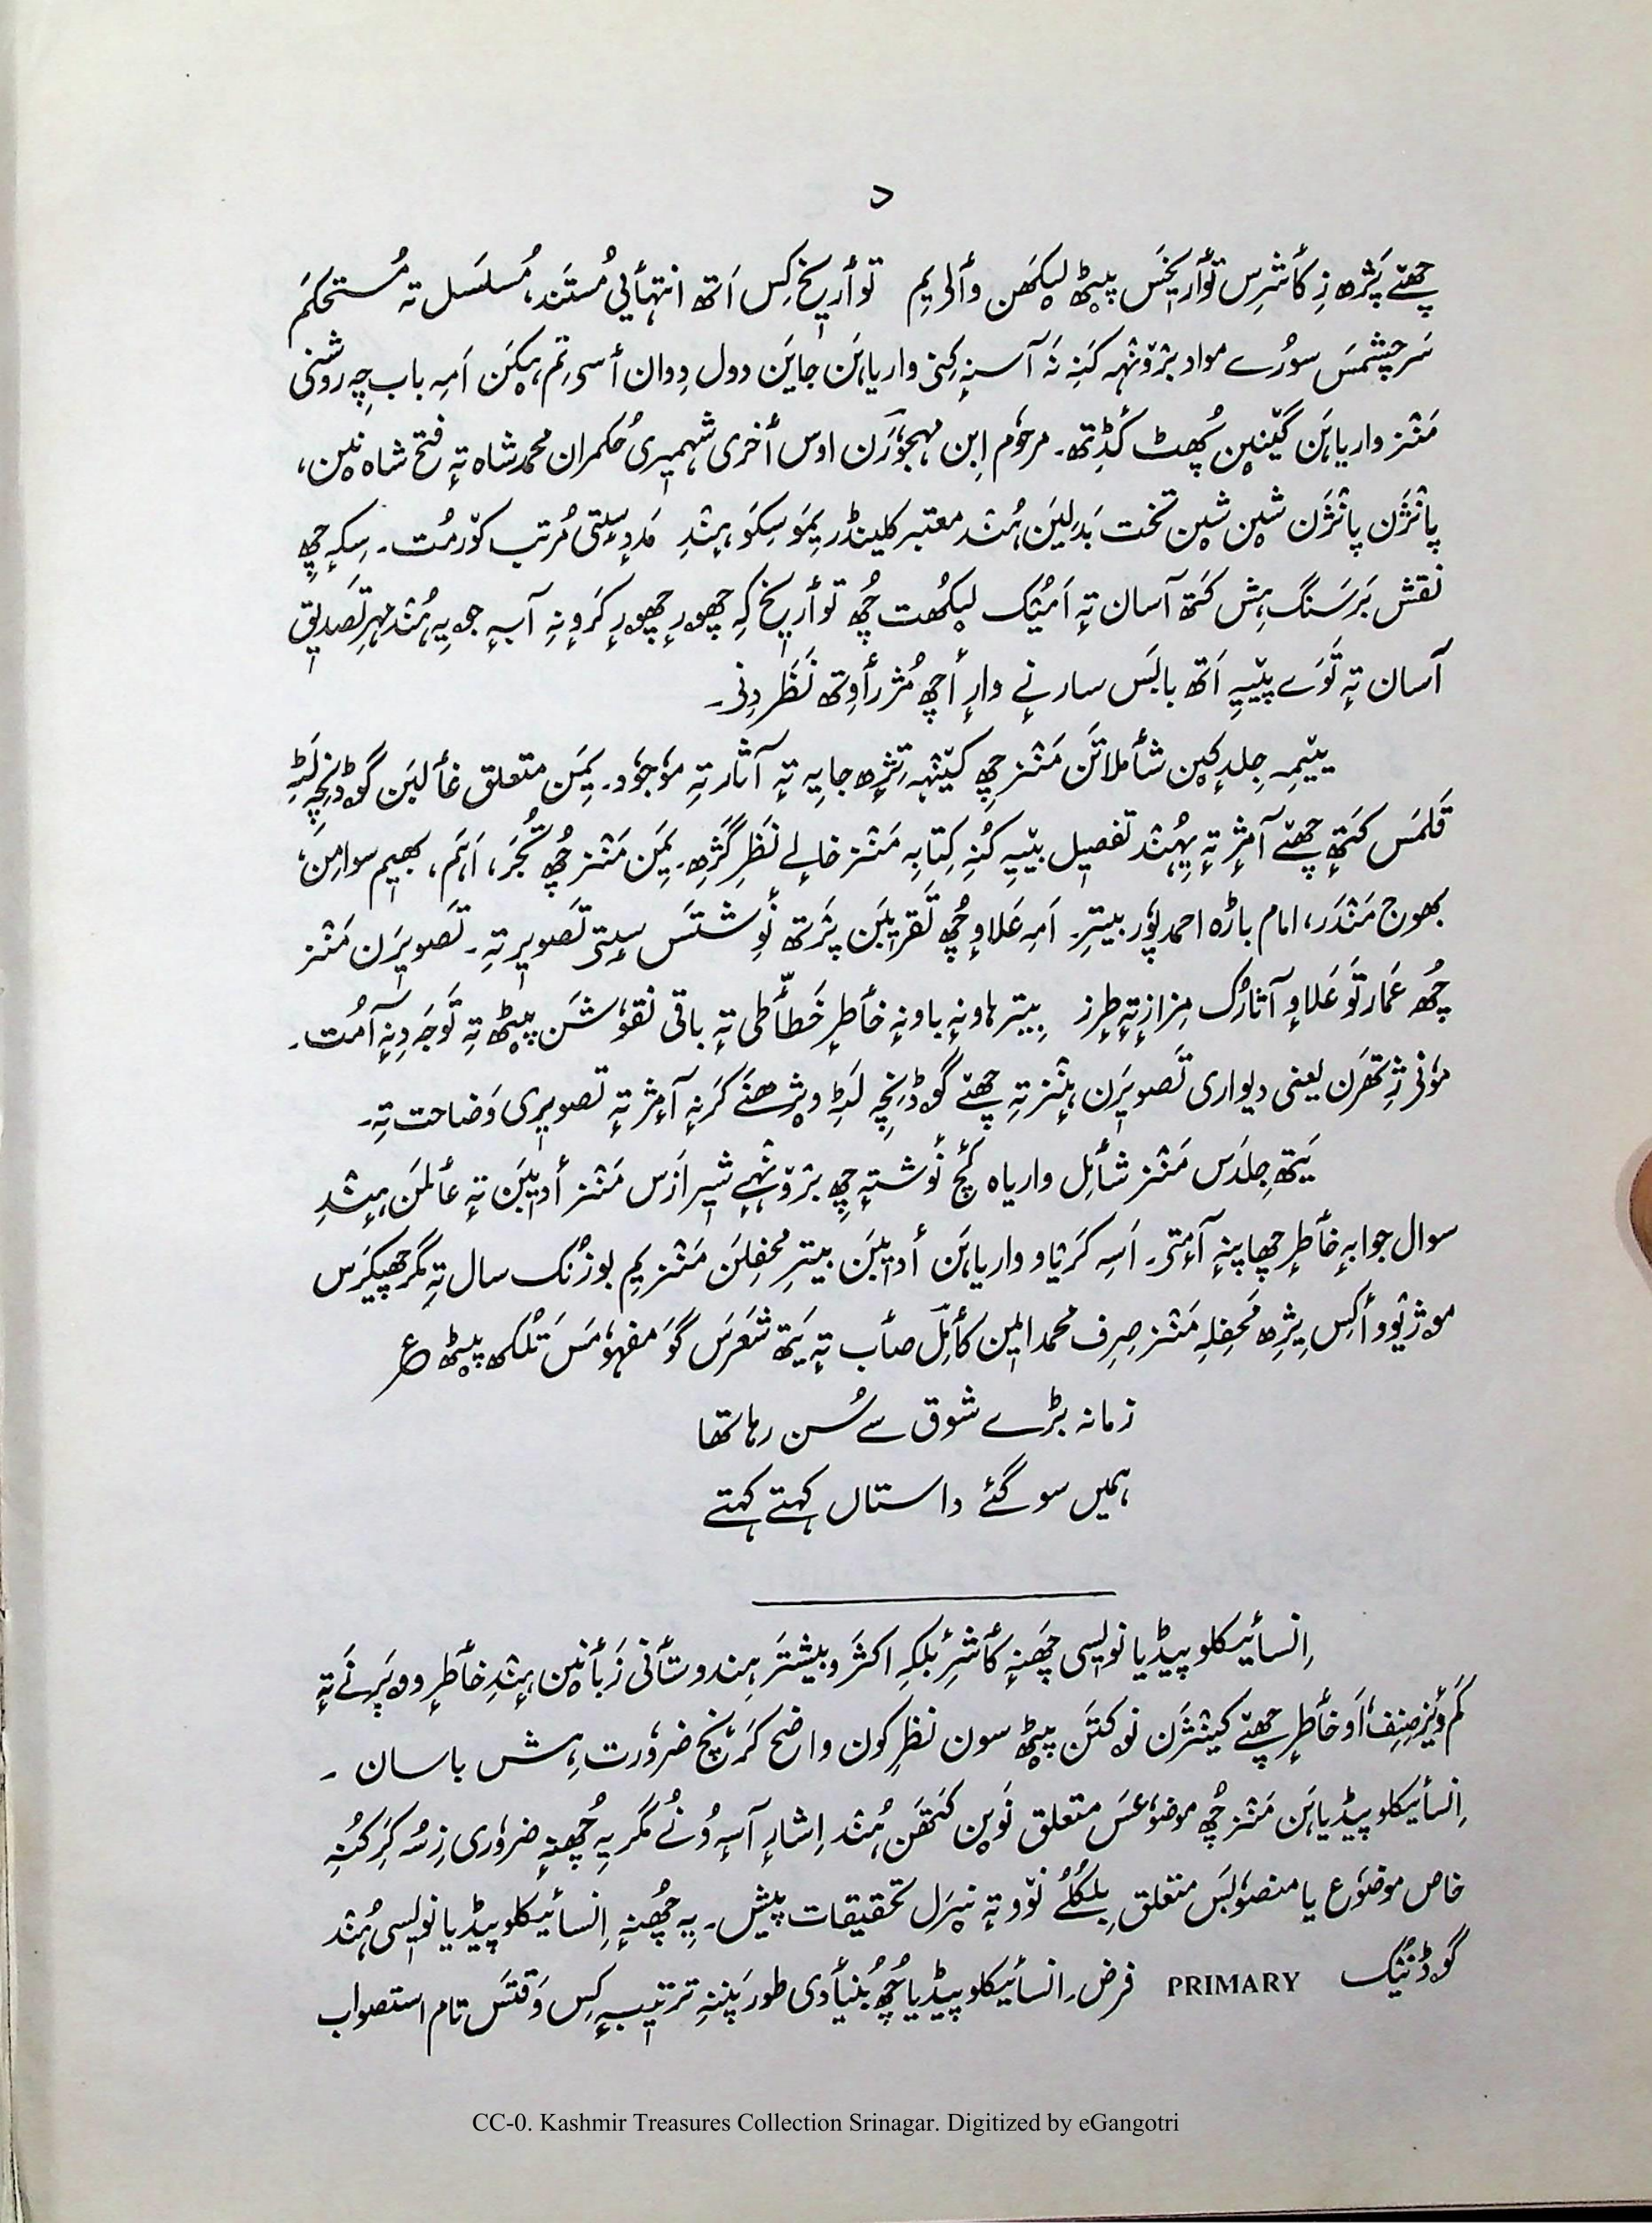 د
چھےٚ پَژھ زِ کٲشرِس توٲریخَس پیٹھ لیکھن وٲلۍ یِم توٲریخ کِس اَتھ انتہٲیی مُستند، مُسلسَل تہ مُستحکَم
سَرچشمَس سورُے مواد برٛونٛہہ کَنہِ نَہ آسنہٕ کِنۍ واریاہَن جایَن دول دِوان ٲسۍ تِم ہیٚکَن اَمہِ باب چہِ روشنی
مَنٛز واریاہَن گینٛین پُھٹ کٔڈِتھ۔ مرحوٗم اِبن مہجوٗرَن اوس ٲخری شہمیری حُکمران محمد شاہ تہٕ فتح شاہ نین،
پانٛژَن پانٛژَن شین شین تخت بَدلیَن ہُنٛد معتبر کلینڈر یِمَو سِکَو ہِنٛدِ مَدٕ سٟتۍ مُرتب کوٚرمُت۔ سِکہٕ چھِ
نقش بَر سَنگ ہِش کَتھ آسان تہٕ اَمیُک لیکھُت چُھ توٲریخ کہِ چھورٕ چھورٕ کَرٕونہِ آبہٕ جویہِ ہُنٛد مہرِ تَصدیٖق
آسان تہٕ تَوَے پیٚیہِ اَتھ بابَس سارِنٕے وارٕ أچھ مُژرٲوِتھ نَظَر دِنۍ۔
یٚیمہِ جِلدٕکین شٲملاتَن مَنٛز چھِ کینٛہہ تِژھ جایہِ تہٕ آثار تہِ موٗجوٗد۔ یِمَن متعلق غٲلبَن گوڈنِچہِ لَٹہِ
قَلمَس کَتھ چھےٚ آمٕژ تہٕ یِہُنٛد تفصیل یٚیہِ کُنہِ کِتابہِ مَنٛز خالے نَظرِ گَژھِ۔ یِمَن مَنٛز چُھ گُجَر، اَہَم، بھیم سوامِن،
بھوج مَنٛدَر، امام باڑہ احمد پوٗر بیترِ۔ اَمہِ عَلاوٕ چُھ تَقریبَن پرٛتھ نَوِشتَس سٟتۍ تَصویر تہِ۔ تَصویرَن مَنٛز
چُھ عَمارتَو عَلاوٕ آثارُک مِزاز تہٕ طرز بیترِ ہاونہٕ باونہٕ خٲطرٕ خَطّٲطی تہٕ باقی نقوٗشَن پیٹھ تہِ تَوَجہ دِنہٕ آمُت۔
موٗنۍ ژِتھرَن یعنی دیواری تَصویرَن ہٕنٛز تہِ چھےٚ گوڈنِچہِ لَٹہِ وِژھنَے کَرنہٕ آمٕژ تہٕ تصویری وَضاحت تہِ۔
یَتھ جِلدَس مَنٛز شٲمِل واریاہ کٔچ نَوِشتہٕ چھِ برٛونٛہے شیرازَس مَنٛز أدیٖبَن تہٕ عٲلمَن ہٕنٛدِ
سوال جوابہٕ خٲطرٕ چھاپنہٕ آمٕتۍ۔ اَسہِ کَرناو واریاہَن أدیٖبَن بیترِ محفِلَن مَنٛز یِم بوزنُک سال تہِ مگر چھیکرَس
موژٮ۪وو أکِس یِژھ مَحفلہِ مَنٛز صِرف محمد امین کٲمِل صٲب تہٕ یَتھ شَعرَس گَو مفہوٗمَس تُلکھ پیٹھ ؏
زمانہ بڑے شوق سے سُن رہا تھا
ہمیں سو گئے داستاں کہتے کہتے
اِنسٲیکلوپیڈیا نویٖسی چَھنہٕ کٲشرِ بلکہِ اکثر و بیشتَر ہندوستٲنی زَبٲنین ہٕنٛدِ خٲطرٕ ووپَرنَے تہٕ
کَم وٕژِ صِنف، اَو خٲطرٕ چھےٚ کینٛژَن نوکتَن پیٹھ سون نظرِ کون واضح کَرٕنۍ ضروٗرت ہِش باسان۔
اِنسٲیکلوپیڈیاہَن مَنٛز چُھ موضوٗعَس متعلق نَوین کَتھَن ہُنٛد اِشارٕ آسہٕ وُنُے مگر یہِ چُھنہٕ ضروٗری زِ سُہ کَرِ کُنہِ
خاص موضوٗع یا منصوٗبَس متعلق بِلکُلُے نوٚو تہٕ نیرَل تحقیقات پیش۔ یہِ چُھنہٕ اِنسٲیکلوپیڈیا نویٖسی ہُنٛد
گوڈنیُک PRIMARY فرض۔ اِنسٲیکلوپیڈیا چُھ بُنیٲدی طور پَننہِ ترتیبہٕ کِس وَقتَس تام استصواب
CC-0. Kashmir Treasures Collection Srinagar. Digitized by eGangotri